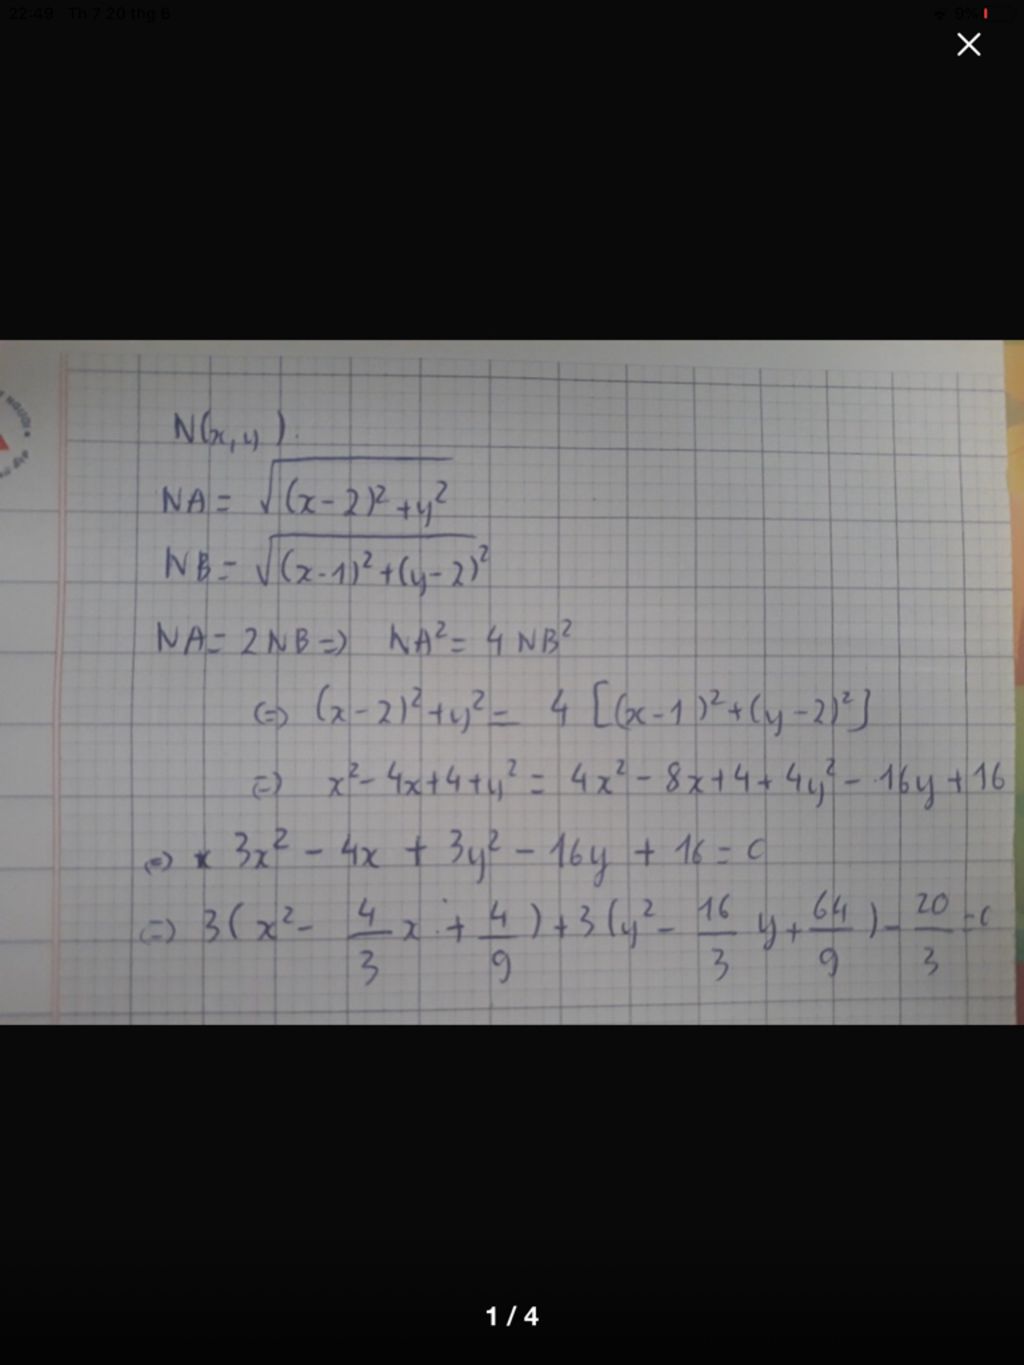 22:49 Th 7 20 thg 6
9%
N(x, y).
NA = √((x-2)² + y²)
NB = √((x-1)² + (y-2)²)
NA = 2NB => NA² = 4 NB²
(=) (x-2)² + y² = 4 [(x-1)² + (y-2)²]
(=) x² - 4x + 4 + y² = 4x² - 8x + 4 + 4y² - 16y + 16
(=) 3x² - 4x + 3y² - 16y + 16 = 0
(=) 3(x² - 4/3 x + 4/9) + 3(y² - 16/3 y + 64/9) - 20/3 = 0
1 / 4